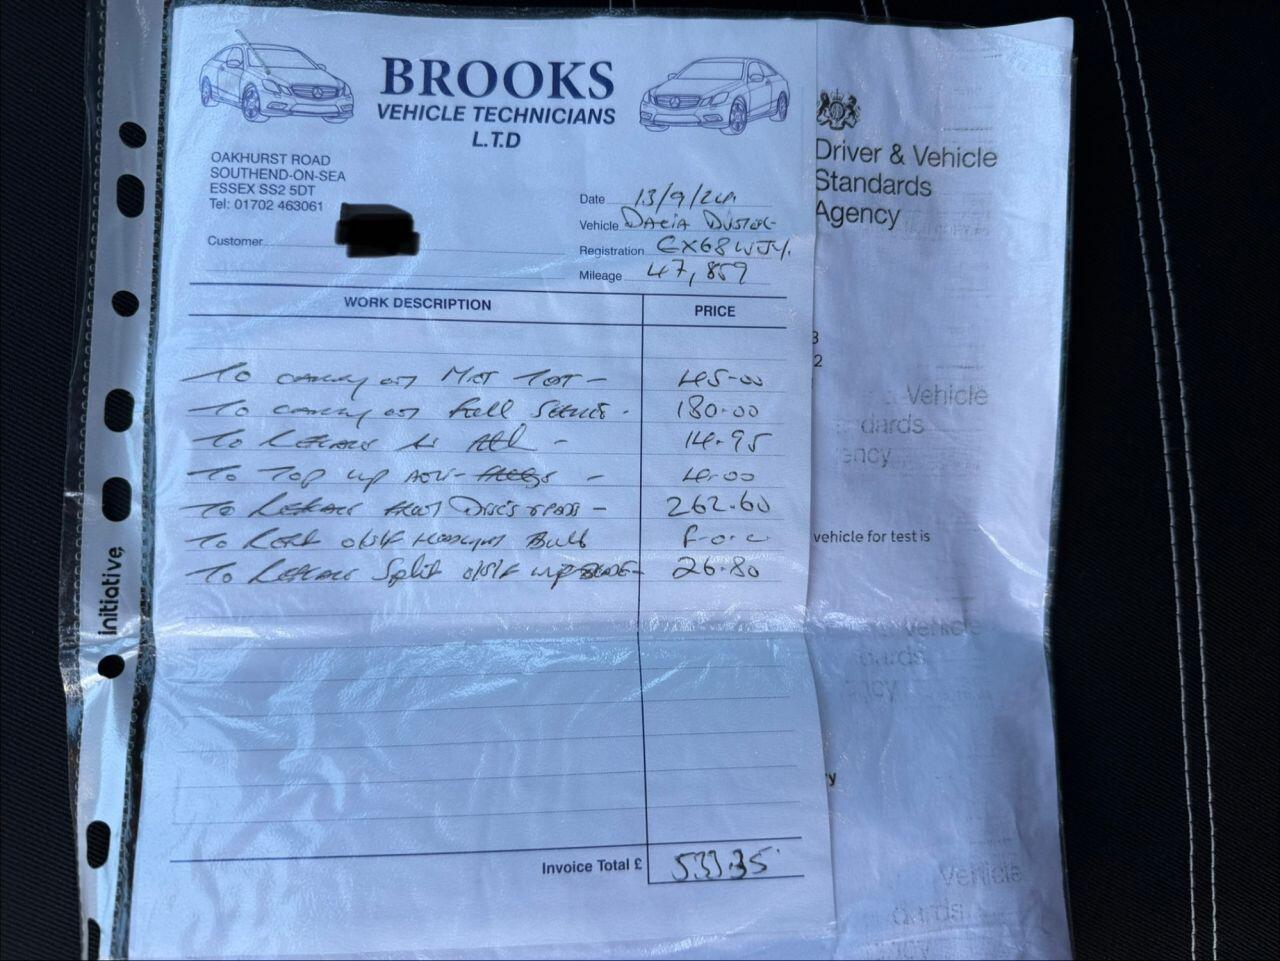 BROOKS
VEHICLE TECHNICIANS
L.T.D
OAKHURST ROAD
SOUTHEND-ON-SEA
ESSEX SS2 5DT
Tel: 01702 463061
Date 13/9/24
Vehicle Dacia Duster
Registration CX68WJY.
Mileage 47,859
Customer
WORK DESCRIPTION PRICE
To carry out MOT Test - 45-00
To carry out full service - 180.00
To 14.95
To Top up - 4.00
To Discs & pads - 262.60
To o/s/f Headlight Bulb F.O.C
To Split o/s/f wip 26.80
Invoice Total £ 533.35
initiative
Driver & Vehicle
Standards
Agency
3
2
Vehicle
dards
ency
vehicle for test is
Vehicle
dards
ency
y
Vehicle
dards
ncy